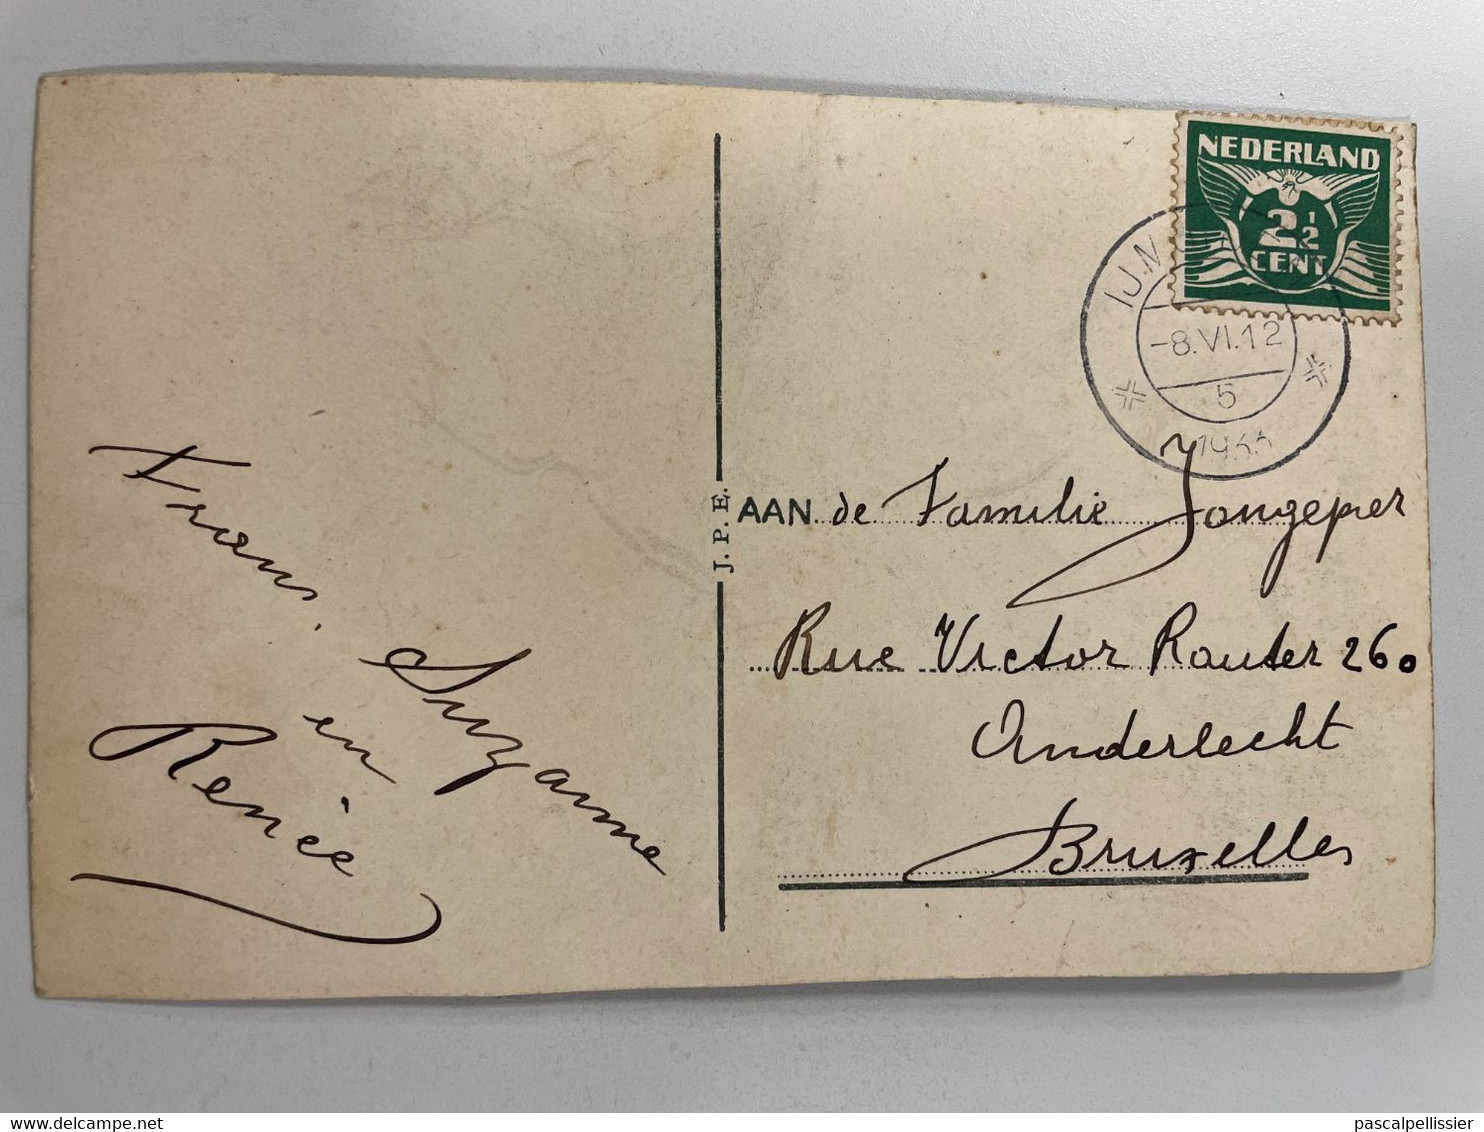 Frans,
Suzanne
en
Renée
J. P. E.
NEDERLAND
2 1/2
CENT
-8.VI.12
5
1933
AAN de Familie Jongepier
Rue Victor Rauter 260
Anderlecht
Bruxelles
pascalpellissier